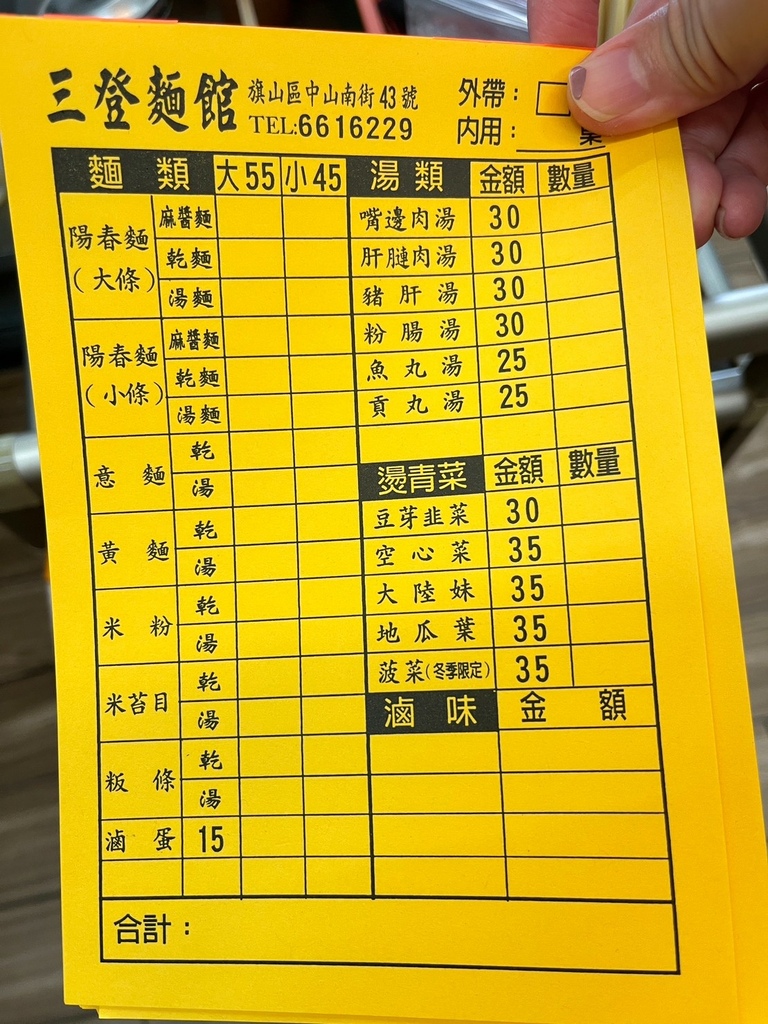 三登麵館 旗山區中山南街43號 外帶：
TEL:6616229 內用：
麵類 大55 小45
陽春麵（大條） 麻醬麵
乾麵
湯麵
陽春麵（小條） 麻醬麵
乾麵
湯麵
意麵 乾
湯
黃麵 乾
湯
米粉 乾
湯
米苔目 乾
湯
粄條 乾
湯
滷蛋 15
湯類 金額 數量
嘴邊肉湯 30
肝腱肉湯 30
豬肝湯 30
粉腸湯 30
魚丸湯 25
貢丸湯 25
燙青菜 金額 數量
豆芽韭菜 30
空心菜 35
大陸妹 35
地瓜葉 35
菠菜(冬季限定) 35
滷味 金額
合計：